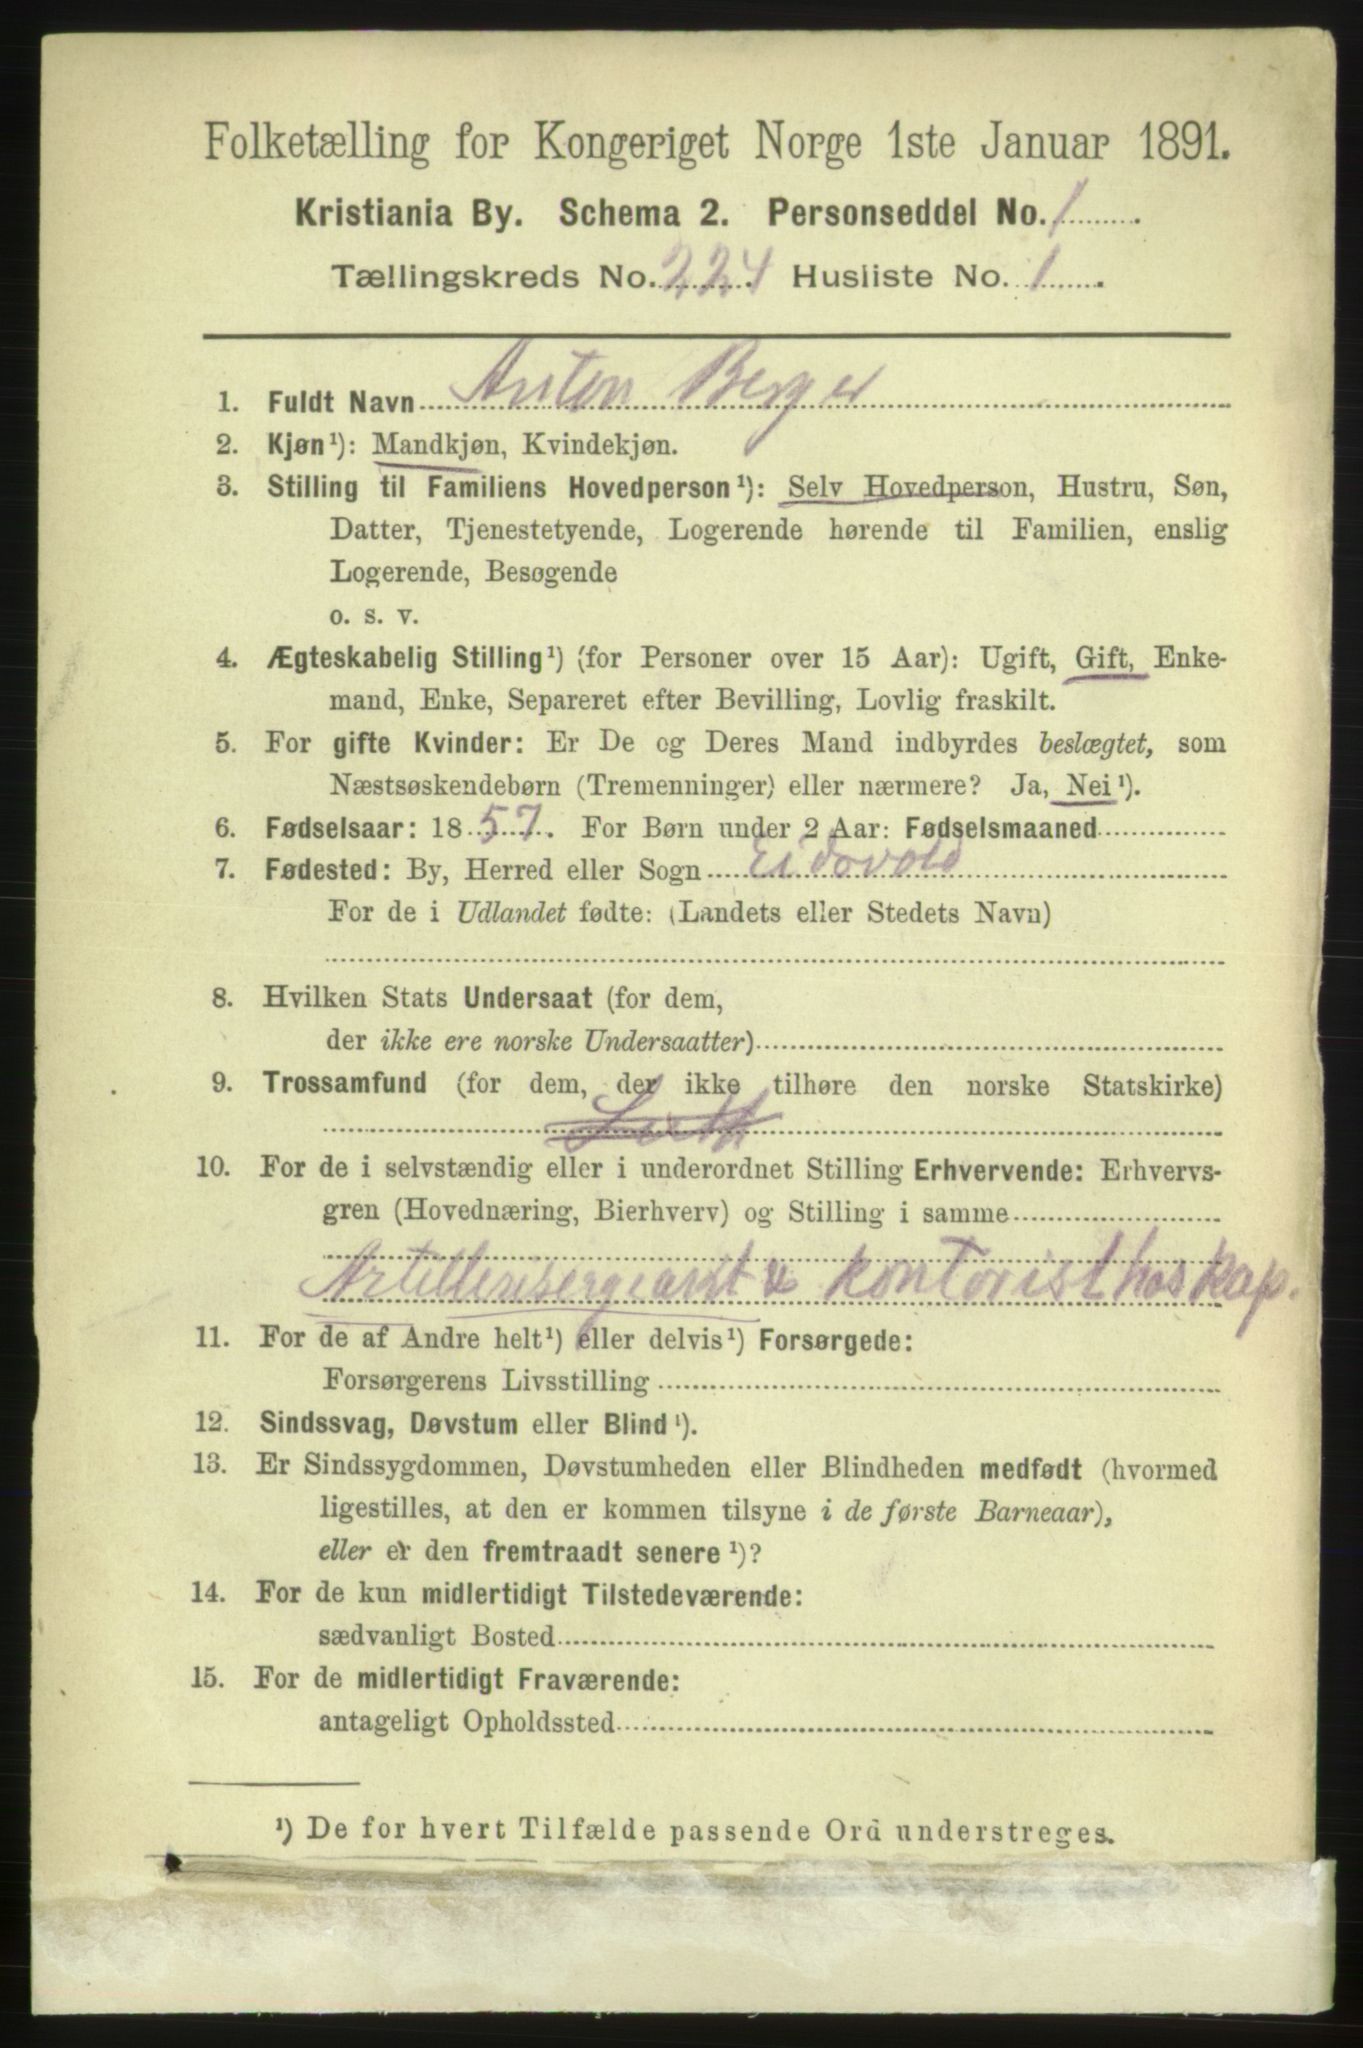 Folketælling for Kongeriget Norge 1ste Januar 1891.
Kristiania By. Schema 2. Personseddel No. 1
Tællingskreds No. 224. Husliste No. 1
1. Fuldt Navn Anton Berger
2. Kjøn¹): Mandkjøn, Kvindekjøn.
3. Stilling til Familiens Hovedperson¹): Selv Hovedperson, Hustru, Søn,
Datter, Tjenestetyende, Logerende hørende til Familien, enslig
Logerende, Besøgende
o. s. v.
4. Ægteskabelig Stilling¹) (for Personer over 15 Aar): Ugift, Gift, Enke-
mand, Enke, Separeret efter Bevilling, Lovlig fraskilt.
5. For gifte Kvinder: Er De og Deres Mand indbyrdes beslægtet, som
Næstsøskendebørn (Tremenninger) eller nærmere? Ja, Nei¹).
6. Fødselsaar: 1857. For Børn under 2 Aar: Fødselsmaaned
7. Fødested: By, Herred eller Sogn Eidsvold
For de i Udlandet fødte: (Landets eller Stedets Navn)
8. Hvilken Stats Undersaat (for dem,
der ikke ere norske Undersaatter)
9. Trossamfund (for dem, der ikke tilhøre den norske Statskirke)
Luth
10. For de i selvstændig eller i underordnet Stilling Erhvervende: Erhvervs-
gren (Hovednæring, Bierhverv) og Stilling i samme
Artillerisergeant & kontorist hos Kap.
11. For de af Andre helt¹) eller delvis¹) Forsørgede:
Forsørgerens Livsstilling
12. Sindssvag, Døvstum eller Blind¹).
13. Er Sindssygdommen, Døvstumheden eller Blindheden medfødt (hvormed
ligestilles, at den er kommen tilsyne i de første Barneaar),
eller er den fremtraadt senere¹)?
14. For de kun midlertidigt Tilstedeværende:
sædvanligt Bosted
15. For de midlertidigt Fraværende:
antageligt Opholdssted
¹) De for hvert Tilfælde passende Ord understreges.